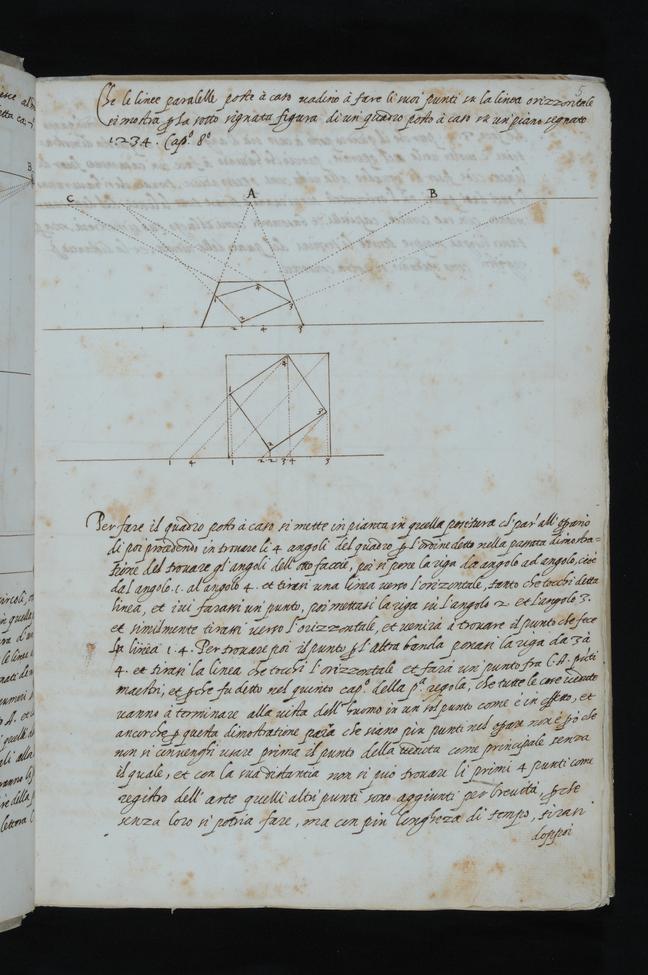 5
Che le linee paralelle poste à caso uadino à fare li suoi punti su la linea orizzontale
si mostra p la sotto signata figura di un quadro posto à caso su un piano segnato
1.2.3.4. Cap.º 8º
C A B
1 4 3 2
2 4 3
4 1 3 2
1 4 1 2 2 3 4 3
Per fare il quadro posto à caso si mette in pianta in quella positura ch' par' all' operario
di poi procedendo in trouare li 4 angoli del quadro p l'ordine detto nella passata dimostra-
tione del trouare gl'angoli dell' otto faccie, poi si pone la riga da angolo ad angolo, cioè
dal angolo .1. al angolo 4. et tirasi una linea uerso l'orizontale, tanto che tocchi detta
linea, et iui farassi un punto, poi mettasi la riga su l'angolo 2. et l'angolo 3.
et similmente tirassi uerso l'orizzontale, et uenirà a trouare il punto che fece
la linea 1.4. Per trouare poi il punto p l'altra banda ponasi la riga da 3 à
4. et tirasi la linea che tocchi l'orizzontale et farà un punto fra C.A. 
maestri, et pche fu detto nel quinto cap. della pª regola, che tutte le cose uedute
uanno à terminare alla uista dell' huomo in un sol punto come è in effetto, et
ancorche p questa dimostratione paia che siano piu punti nel operare non è pò che
non si conuenghi usare prima il punto della ueduta come principale senza
il quale, et con la sua distantia non si può trouare li primi 4 punti come
registro dell' arte quelli altri punti sono aggiunti per breuità, pche
senza loro si potria fare, ma con più longheza di tempo, tirasi
doppoi